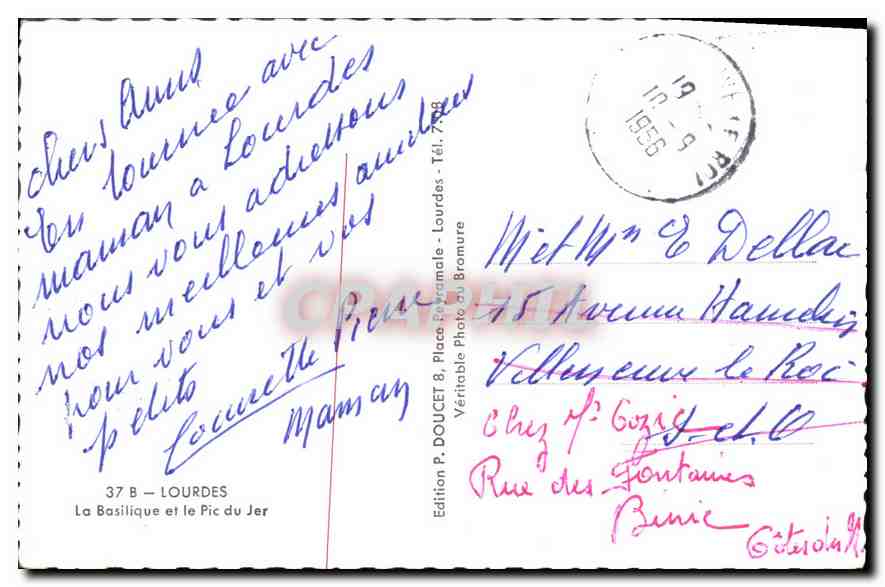 chers Amis
En tournée avec
maman a Lourdes
nous vous adressons
nos meilleures amitiés
pour vous et vos
petits
Pierre
Maman
37 B — LOURDES
La Basilique et le Pic du Jer
Edition P. DOUCET 8, Place Peyramale - Lourdes - Tél. 7.08
Véritable Photo au Bromure
19
10 - 9
1956
M et Mm E Dellac
15 Avenue
Villeneuve le Roi
S-et-O
Chez Mr Gozic
Rue des Fontaines
Binic
Côtes du N